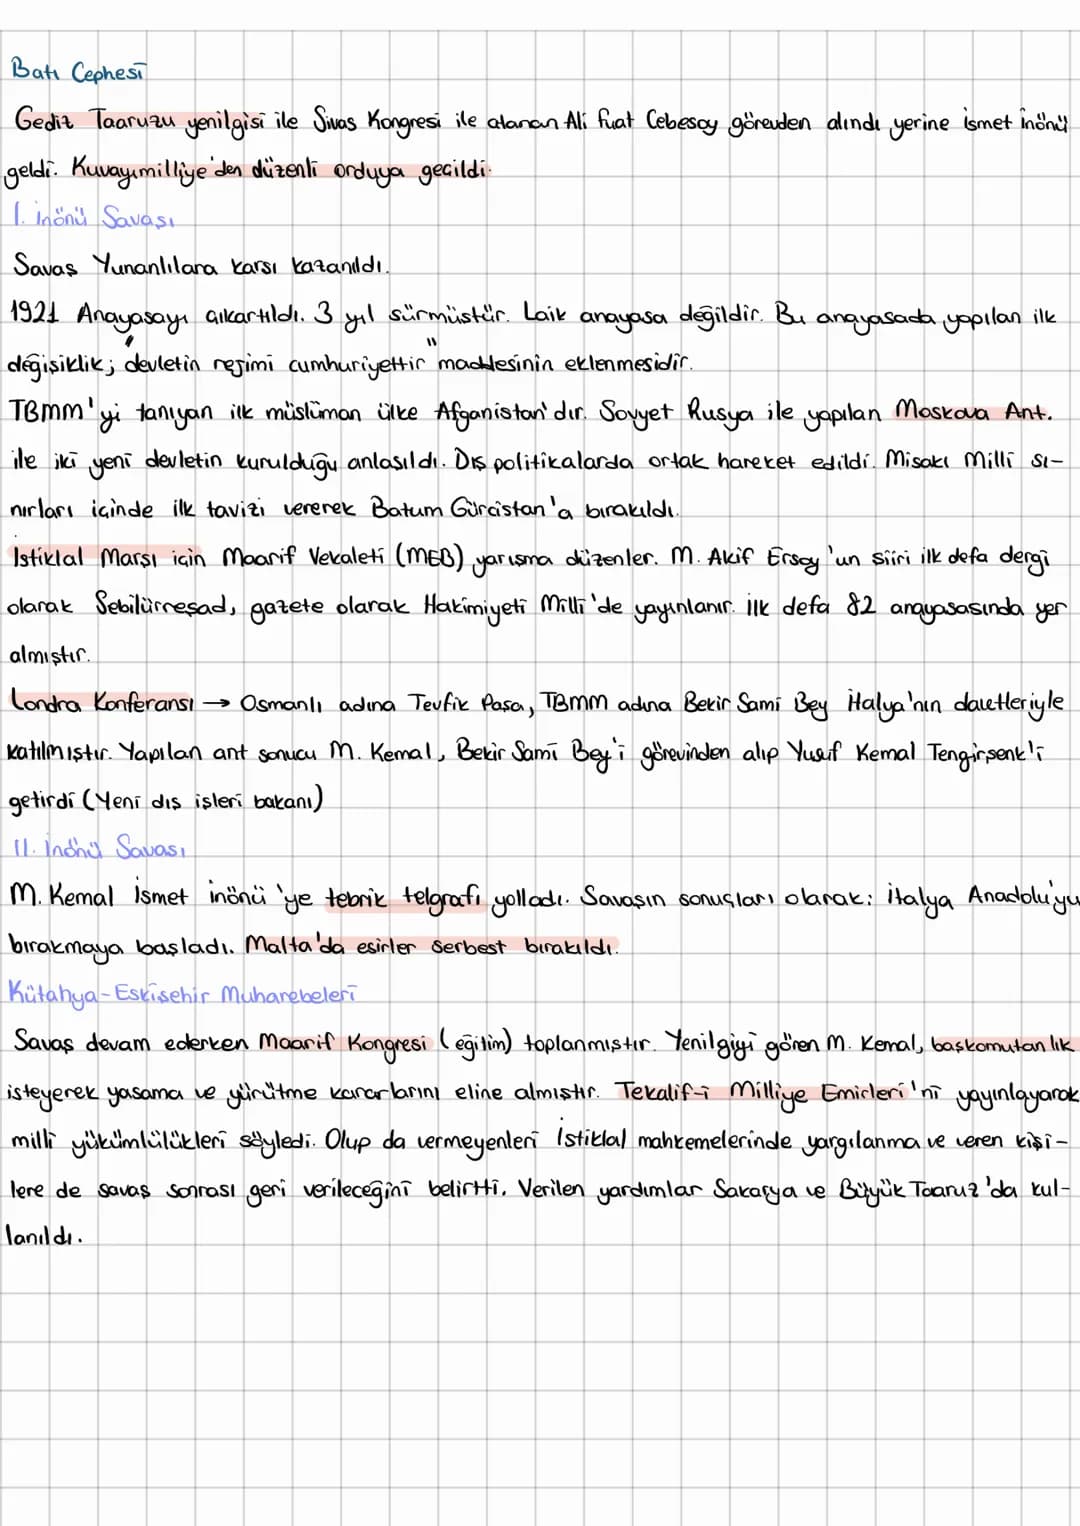 Batı Cephesi
Gediz Taaruzu yenilgisi ile Sivas Kongresi ile atanan Ali Fuat Cebesoy görevden alındı yerine İsmet İnönü
geldi. Kuvayımilliye'den düzenli orduya geçildi.
I. İnönü Savaşı
Savaş Yunanlılara karşı kazanıldı.
1921 Anayasayı çıkartıldı. 3 yıl sürmüştür. Laik anayasa değildir. Bu anayasada yapılan ilk
değişiklik; "devletin rejimi cumhuriyettir" maddesinin eklenmesidir.
TBMM'yi tanıyan ilk müslüman ülke Afganistan'dır. Sovyet Rusya ile yapılan Moskova Ant.
ile iki yeni devletin kurulduğu anlaşıldı. Dış politikalarda ortak hareket edildi. Misakı Milli sı-
nırları içinde ilk tavizi vererek Batum Gürcistan'a bırakıldı.
İstiklal Marşı için Maarif Vekaleti (MEB) yarışma düzenler. M. Akif Ersoy'un şiiri ilk defa dergi
olarak Sebilürreşad, gazete olarak Hakimiyeti Milli'de yayınlanır. İlk defa 82 anayasasında yer
almıştır.
Londra Konferansı → Osmanlı adına Tevfik Paşa, TBMM adına Bekir Sami Bey İtalya'nın davetleriyle
katılmıştır. Yapılan ant sonucu M. Kemal, Bekir Sami Bey'i görevinden alıp Yusuf Kemal Tengirşenk'i
getirdi (Yeni dış işleri bakanı)
II. İnönü Savaşı
M. Kemal İsmet İnönü'ye tebrik telgrafı yolladı. Savaşın sonuçları olarak: İtalya Anadolu'yu
bırakmaya başladı. Malta'da esirler serbest bırakıldı.
Kütahya-Eskişehir Muharebeleri
Savaş devam ederken Maarif Kongresi (eğitim) toplanmıştır. Yenilgiyi gören M. Kemal, başkomutanlık
isteyerek yasama ve yürütme kararlarını eline almıştır. Tekalif-i Milliye Emirleri'ni yayınlayarak
milli yükümlülükleri söyledi. Olup da vermeyenleri İstiklal mahkemelerinde yargılanma ve veren kişi-
lere de savaş sonrası geri verileceğini belirtti. Verilen yardımlar Sakarya ve Büyük Taaruz'da kul-
lanıldı.